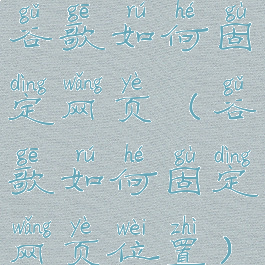 gǔ gē rú hé gù
谷歌如何固
dìng wǎng yè gǔ
定网页（谷
gē rú hé gù dìng
歌如何固定
wǎng yè wèi zhì
网页位置）